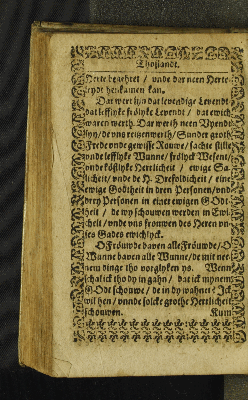 Thoslandt.
Herte begehret / vnde dar neen Herte
leydt henkamen kan.
Dar wert syn dat levendige Levendt
dat leefflyke frölyke Levendt / dat ewich
waren werth. Dar werth neen Vyendt
syn / de vns reisen werth / Sunder grote
Frede vnde gewisse Rouwe / sachte stille
vnde leefflyke Wunne / frölyck Wesent /
vnde köstlyke Herrlicheit / ewige Sa-
licheit / vnde de H. Drefoldicheit / eine
ewige Godtheit in dren Personen / vnde
drey Personen in einer ewigen Godt-
heit / de wy schouwen werden in Ewi-
cheit / vnde vns frouwen des Heren vn-
ses Gades ewichlyck.
O Fröuwde baven alle Fröuwde / O
Wunne baven alle Wunne / de mit ne-
nem dinge tho vorglyken ys. Wenn
schal ick tho dy in gahn / dat ick mynem
Godt schouwe / de in dy wahnet? Ick
wil hen / vnnde solcke grothe Herrlicheit
schouwen. Kum